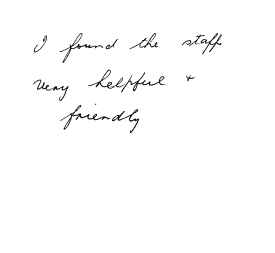 I found the staff
very helpful +
friendly